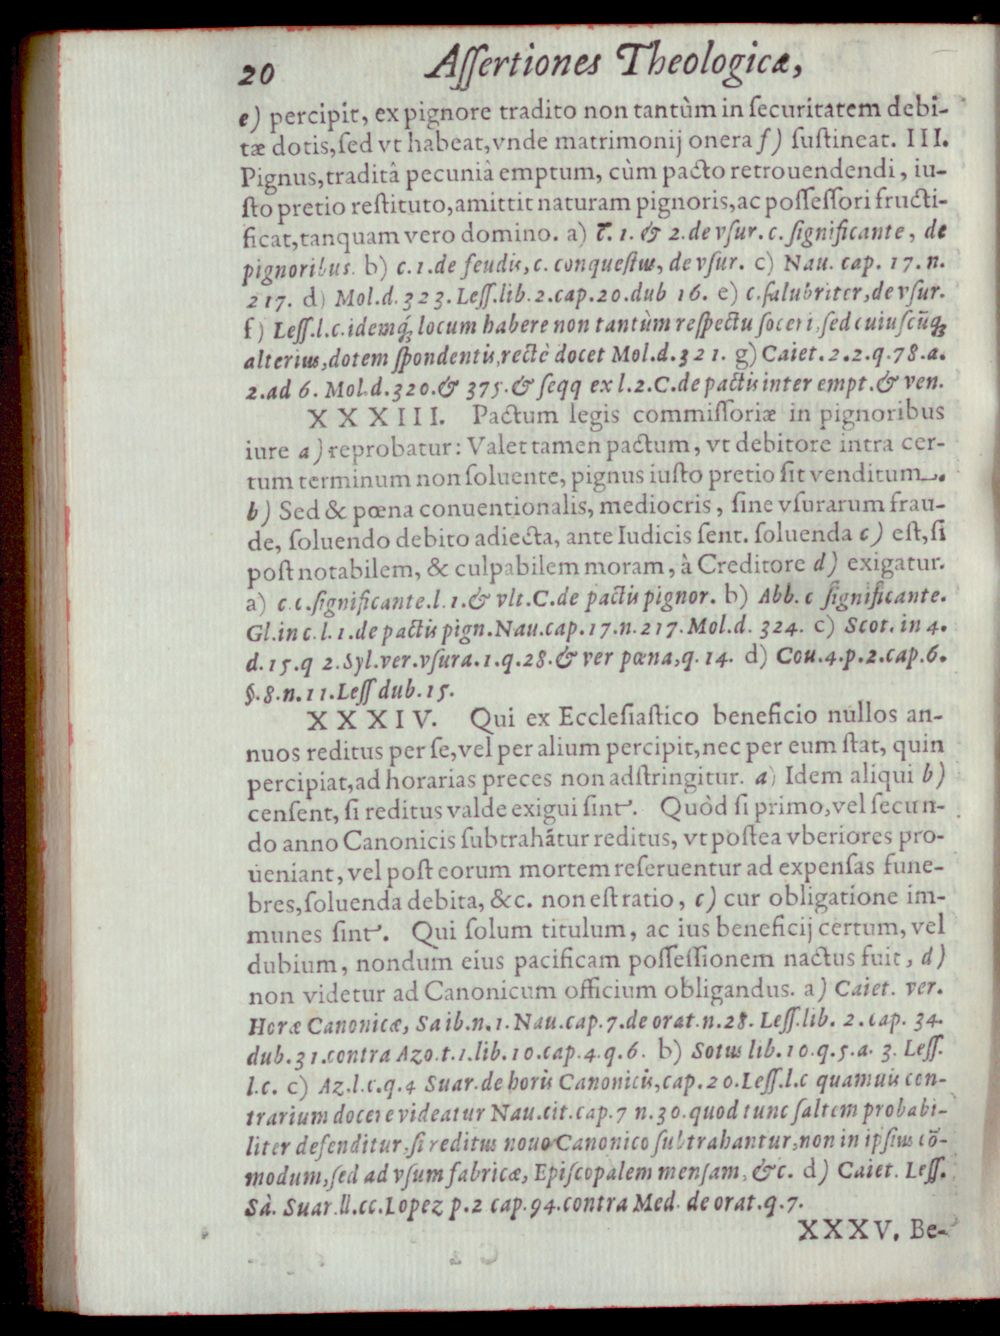 20 Aſſertiones Theologicæ,
e) percipit, ex pignore tradito non tantùm in ſecuritatem debi-
tæ dotis, ſed vt habeat, vnde matrimonij onera f) ſuſtineat. III.
Pignus, traditâ pecuniâ emptum, cùm pacto retrouendendi, iu-
ſto pretio reſtituto, amittit naturam pignoris, ac poſſeſſori fructi-
ficat, tanquam vero domino. a) T. 1. & 2. de vſur. c. ſignificante, de
pignoribus. b) c. 1. de feudis, c. conqueſtus, de vſur. c) Nau. cap. 17. n.
217. d) Mol. d. 323. Leſſ. lib. 2. cap. 20. dub 16. e) c. ſalubriter, de vſur.
f) Leſſ. l. c. idemq́; locum habere non tantùm reſpectu ſoceri, ſed cuiuſcūq;
alterius, dotem ſpondentis, rectè docet Mol. d. 321. g) Caiet. 2. 2. q. 78. a.
2. ad 6. Mol. d. 320. & 375. & ſeqq ex l. 2. C. de pactis inter empt. & ven.
XXXIII. Pactum legis commiſſoriæ in pignoribus
iure a) reprobatur: Valet tamen pactum, vt debitore intra cer-
tum terminum non ſoluente, pignus iuſto pretio ſit venditum.
b) Sed & pœna conuentionalis, mediocris, ſine vſurarum frau-
de, ſoluendo debito adiecta, ante Iudicis ſent. ſoluenda c) eſt, ſi
poſt notabilem, & culpabilem moram, à Creditore d) exigatur.
a) c. c. ſignificante. l. 1. & vlt. C. de pactis pignor. b) Abb. c ſignificante.
Gl. in c. l. 1. de pactis pign. Nau. cap. 17. n. 217. Mol. d. 324. c) Scot. in 4.
d. 15. q 2. Syl. ver. vſura. 1. q. 28. & ver pœna, q. 14. d) Cou. 4. p. 2. cap. 6.
§. 8. n. 11. Leſſ dub. 15.
XXXIV. Qui ex Eccleſiaſtico beneficio nullos an-
nuos reditus per ſe, vel per alium percipit, nec per eum ſtat, quin
percipiat, ad horarias preces non adſtringitur. a) Idem aliqui b)
cenſent, ſi reditus valde exigui ſint. Quòd ſi primo, vel ſecun-
do anno Canonicis ſubtrahãtur reditus, vt poſtea vberiores pro-
ueniant, vel poſt eorum mortem reſeruentur ad expenſas fune-
bres, ſoluenda debita, &c. non eſt ratio, c) cur obligatione im-
munes ſint. Qui ſolum titulum, ac ius beneficij certum, vel
dubium, nondum eius pacificam poſſeſſionem nactus fuit, d)
non videtur ad Canonicum officium obligandus. a) Caiet. ver.
Horæ Canonicæ, Sa ib. n. 1. Nau. cap. 7. de orat. n. 28. Leſſ. lib. 2. cap. 34.
dub. 31. contra Azo. t. 1. lib. 10. cap. 4. q. 6. b) Sotus lib. 10. q. 5. a. 3. Leſſ.
l. c. c) Az. l. c. q. 4 Suar. de horis Canonicis, cap. 20. Leſſ. l. c quamuis con-
trarium docere videatur Nau. cit. cap. 7 n. 30. quod tunc ſaltem probabi-
liter defenditur, ſi reditus nouo Canonico ſubtrahantur, non in ipſius cō-
modum, ſed ad vſum fabricæ, Epiſcopalem menſam, &c. d) Caiet. Leſſ.
Sà. Suar. ll. cc. Lopez p. 2 cap. 94. contra Med. de orat. q. 7.
XXXV. Be-